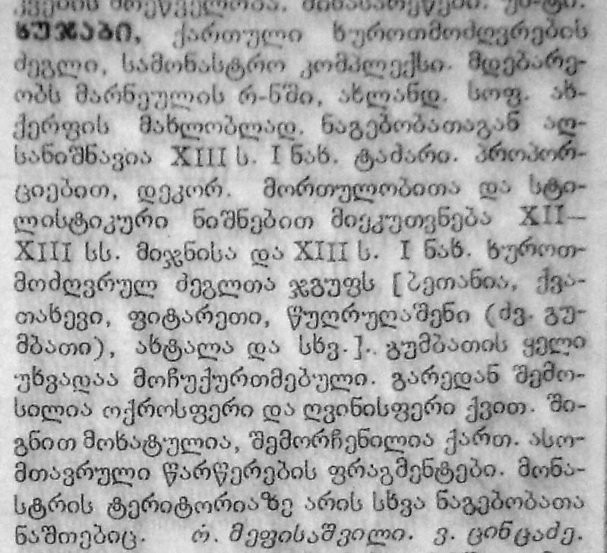 ხუჯაბი, ქართული ხუროთმოძღვრების
ძეგლი, სამონასტრო კომპლექსი. მდებარე-
ობს მარნეულის რ-ნში, ახლანდ. სოფ. ახ-
ქერფის მახლობლად. ნაგებობათაგან აღ-
სანიშნავია XIII ს. I ნახ. ტაძარი. პროპორ-
ციებით, დეკორ. მორთულობითა და სტი-
ლისტიკური ნიშნებით მიეკუთვნება XII—
XIII სს. მიჯნისა და XIII ს. I ნახ. ხუროთ-
მოძღვრულ ძეგლთა ჯგუფს [ბეთანია, ქვა-
თახევი, ფიტარეთი, წუღრუღაშენი (ძვ. გუ-
მბათი), ახტალა და სხვ.]. გუმბათის ყელი
უხვადაა მოჩუქურთმებული. გარედან შემო-
სილია ოქროსფერი და ღვინისფერი ქვით. ში-
გნით მოხატულია, შემორჩენილია ქართ. ასო-
მთავრული წარწერების ფრაგმენტები. მონა-
სტრის ტერიტორიაზე არის სხვა ნაგებობათა
ნაშთებიც. რ. მეფისაშვილი. ვ. ცინცაძე.